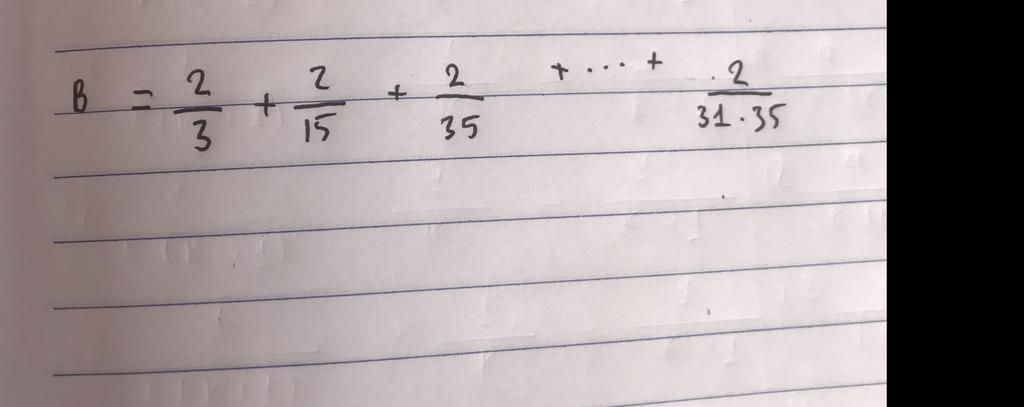 B = 2/3 + 2/15 + 2/35 + ... + 2/(31.35)